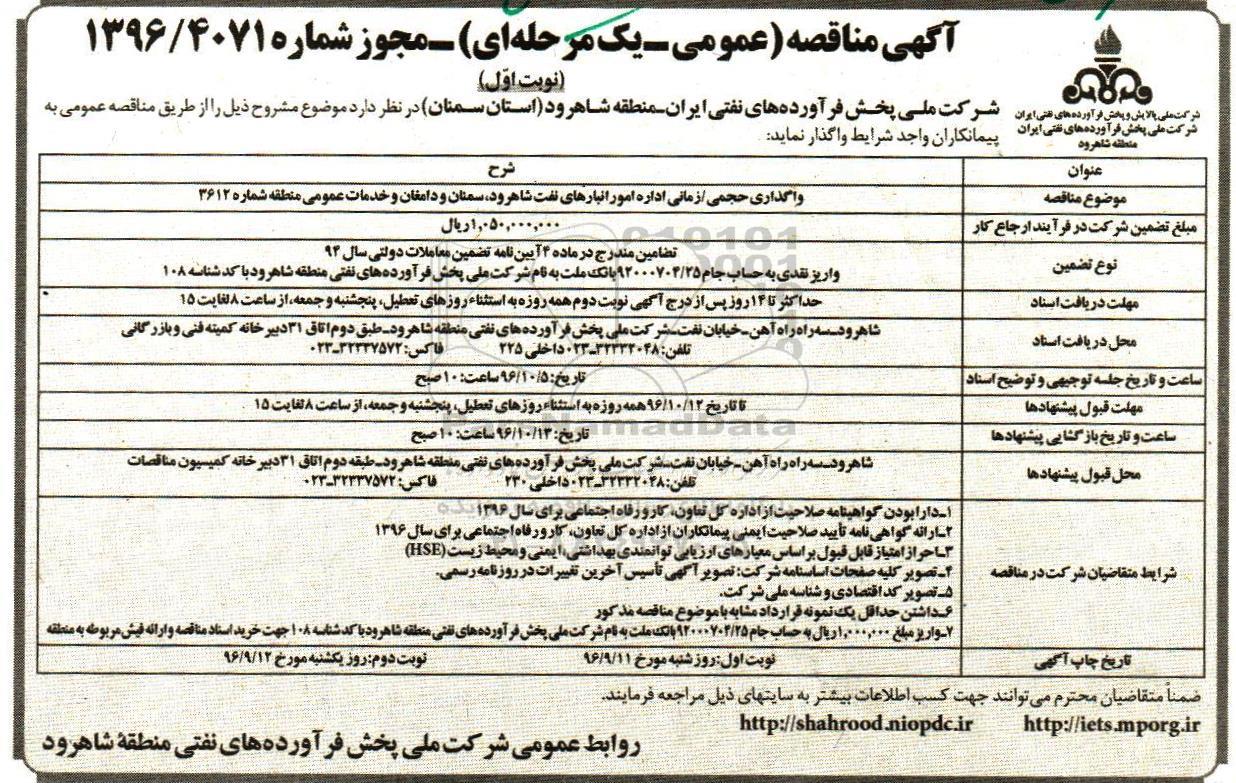 آگهی مناقصه (عمومی ـ یک مرحله‌ای) ـ مجوز شماره ۱۳۹۶/۴۰۷۱
(نوبت اوّل)
شرکت ملی پالایش و پخش فرآورده‌های نفتی ایران
شرکت ملی پخش فرآورده‌های نفتی ایران
منطقه شاهرود
شرکت ملـی پخـش فـرآورده‌های نفتی ایران ـ منطقه شـاهرود (استان سـمنان) در نظر دارد موضوع مشروح ذیل را از طریق مناقصه عمومی به
پیمانکاران واجد شرایط واگذار نماید:
عنوان شرح
موضوع مناقصه واگذاری حجمی/زمانی اداره امور انبارهای نفت شاهرود، سمنان و دامغان و خدمات عمومی منطقه شماره ۳۶۱۲
مبلغ تضمین شرکت در فرآیند ارجاع کار ۱,۰۵۰,۰۰۰,۰۰۰ ریال
نوع تضمین تضامین مندرج در ماده ۴ آیین نامه تضمین معاملات دولتی سال ۹۴
واریز نقدی به حساب جام ۹۲۰۰۰۷۰۴/۲۵ بانک ملت به نام شرکت ملی پخش فرآورده‌های نفتی منطقه شاهرود با کد شناسه ۱۰۸
مهلت دریافت اسناد حداکثر تا ۱۴ روز پس از درج آگهی نوبت دوم همه روزه به استثناء روزهای تعطیل، پنجشنبه و جمعه، از ساعت ۸ لغایت ۱۵
محل دریافت اسناد شاهرود ـ سه راه راه آهن ـ خیابان نفت ـ شرکت ملی پخش فرآورده‌های نفتی منطقه شاهرود ـ طبق دوم اتاق ۳۱ دبیرخانه کمیته فنی و بازرگانی
تلفن: ۳۲۳۳۲۰۴۸ـ۰۲۳ داخلی ۲۲۵ فاکس: ۳۲۳۳۷۵۷۲ـ۰۲۳
ساعت و تاریخ جلسه توجیهی و توضیح اسناد تاریخ: ۹۶/۱۰/۵ ساعت: ۱۰ صبح
مهلت قبول پیشنهادها تا تاریخ ۹۶/۱۰/۱۲ همه روزه به استثناء روزهای تعطیل، پنجشنبه و جمعه، از ساعت ۸ لغایت ۱۵
ساعت و تاریخ بازگشایی پیشنهادها تاریخ: ۹۶/۱۰/۱۳ ساعت: ۱۰ صبح
محل قبول پیشنهادها شاهرود ـ سه راه راه آهن ـ خیابان نفت ـ شرکت ملی پخش فرآورده‌های نفتی منطقه شاهرود ـ طبقه دوم اتاق ۳۱ دبیرخانه کمیسیون مناقصات
تلفن: ۳۲۳۳۲۰۴۸ـ۰۲۳ داخلی ۲۳۰ فاکس: ۳۲۳۳۷۵۷۲ـ۰۲۳
شرایط متقاضیان شرکت در مناقصه
۱ـ دارا بودن گواهینامه صلاحیت از اداره کل تعاون، کار و رفاه اجتماعی برای سال ۱۳۹۶
۲ـ ارائه گواهی نامه تأیید صلاحیت ایمنی پیمانکاران از اداره کل تعاون، کار و رفاه اجتماعی برای سال ۱۳۹۶
۳ـ احراز امتیاز قابل قبول بر اساس معیارهای ارزیابی توانمندی بهداشتی، ایمنی و محیط زیست (HSE)
۴ـ تصویر کلیه صفحات اساسنامه شرکت: تصویر آگهی تأسیس آخرین تغییرات در روزنامه رسمی.
۵ـ تصویر کد اقتصادی و شناسه ملی شرکت.
۶ـ داشتن حداقل یک نمونه قرارداد مشابه با موضوع مناقصه مذکور
۷ـ واریز مبلغ ۱,۰۰۰,۰۰۰ ریال به حساب جام ۹۲۰۰۰۷۰۴/۲۵ بانک ملت به نام شرکت ملی پخش فرآورده‌های نفتی منطقه شاهرود با کد شناسه ۱۰۸ جهت خرید اسناد مناقصه و ارائه فیش مربوطه به منطقه
تاریخ چاپ آگهی نوبت اول: روز شنبه مورخ ۹۶/۹/۱۱ نوبت دوم: روز یکشنبه مورخ ۹۶/۹/۱۲
ضمناً متقاضیان محترم می‌توانند جهت کسب اطلاعات بیشتر به سایتهای ذیل مراجعه فرمایند.
http://iets.mporg.ir http://shahrood.niopdc.ir
روابط عمومی شرکت ملی پخش فرآورده‌های نفتی منطقهٔ شاهرود
ParsNamadData